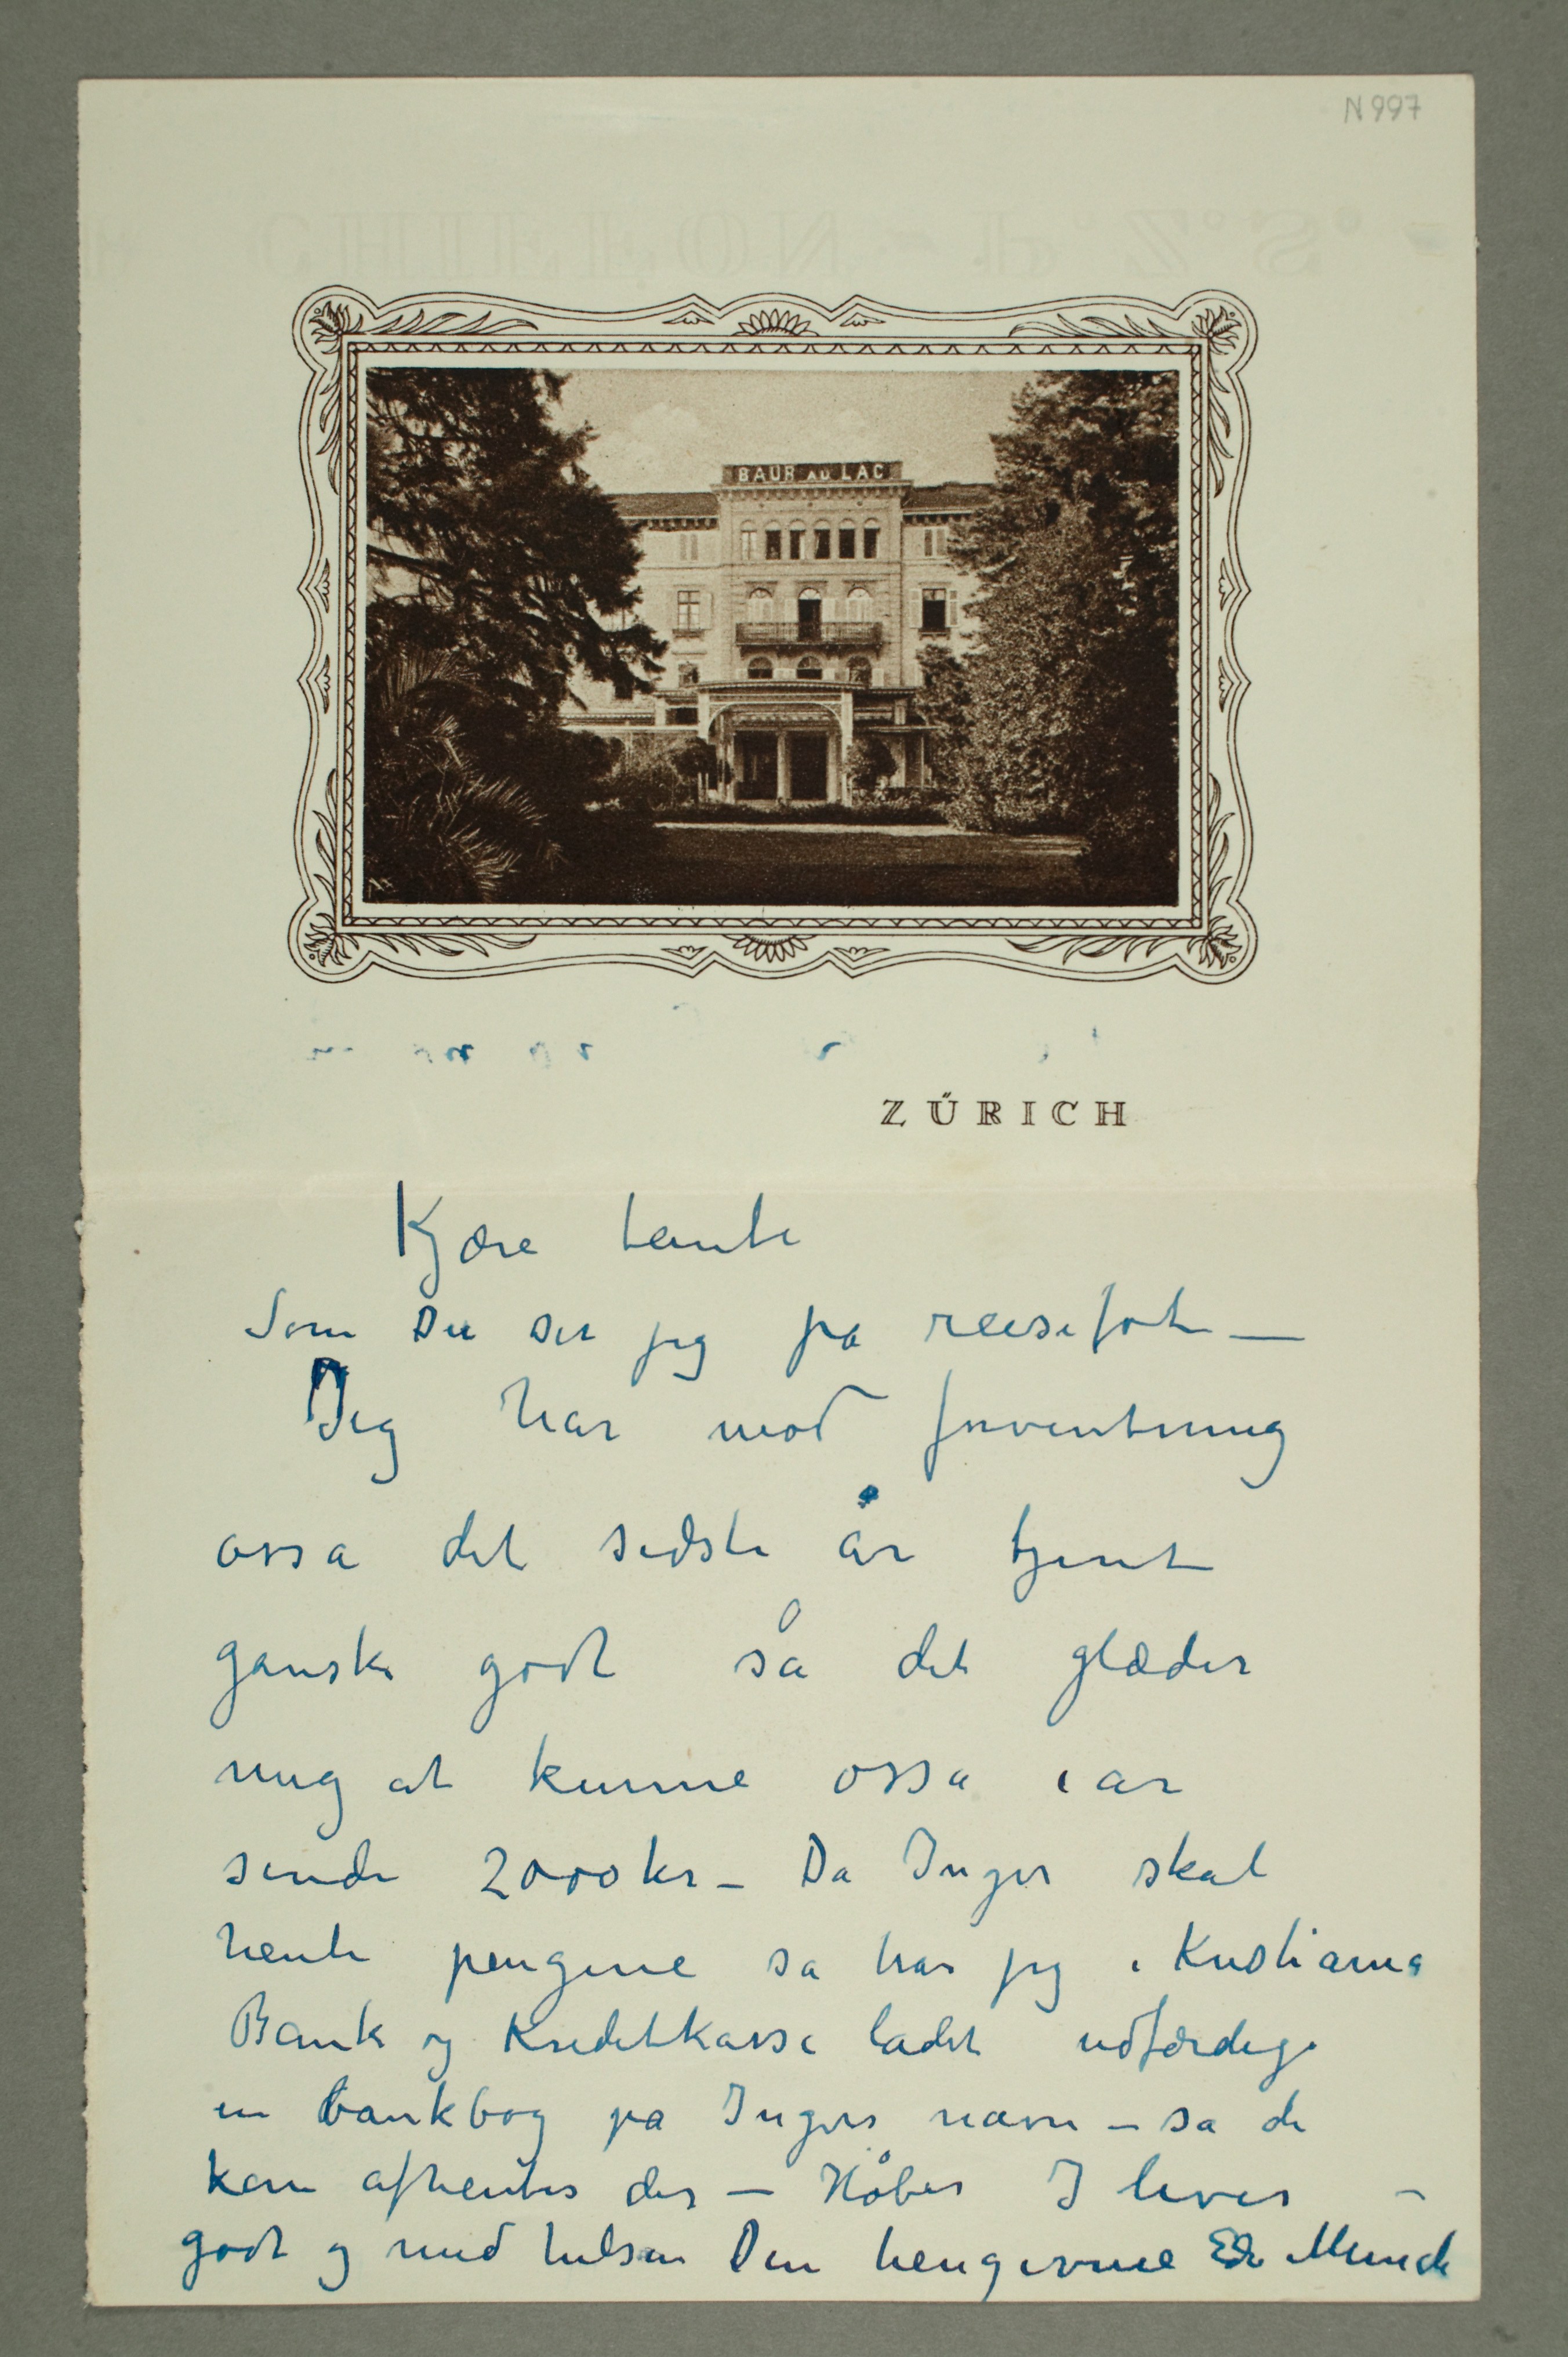 N997
BAUR AU LAC
ZÜRICH
Kjære tante
Som Du ser jeg på reisefot —
Jeg har mod forventning
ossa det sidste år tjent
ganske godt så det glæder
mig at kunne ossa iår
sende 2000 kr – Da Inger skal
hente pengene sa har jeg i Kristiania
Bank og Kreditkasse ladet udfærdige
en bankbog pa Ingers navn – sa de
kan afhentes der – Håber I lever –
godt og med hilsen Din hengivne Edv Munch